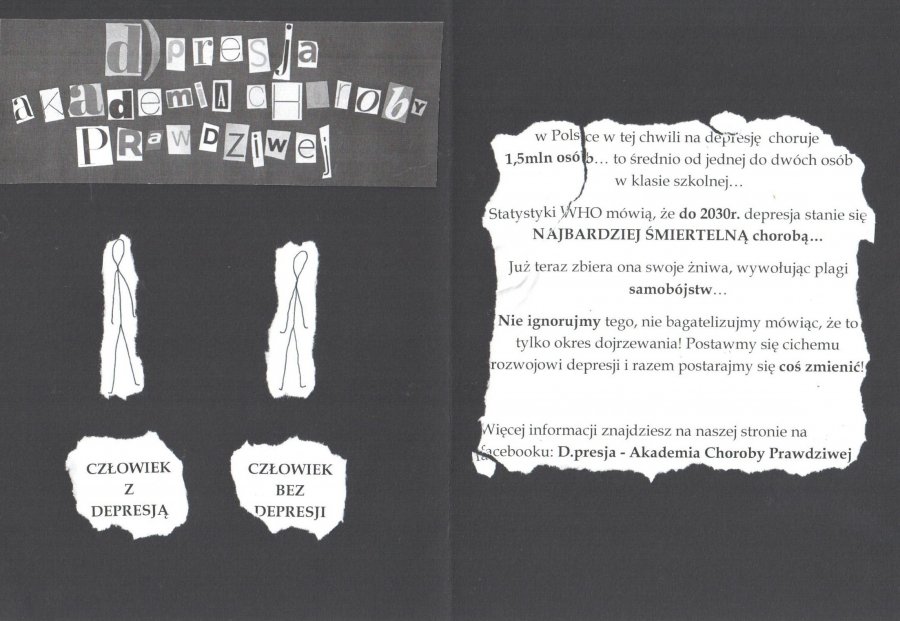 d)presja
akademia choroby
Prawdziwej
CZŁOWIEK
Z
DEPRESJĄ
CZŁOWIEK
BEZ
DEPRESJI
w Polsce w tej chwili na depresję choruje
1,5mln osób... to średnio od jednej do dwóch osób
w klasie szkolnej...
Statystyki WHO mówią, że do 2030r. depresja stanie się
NAJBARDZIEJ ŚMIERTELNĄ chorobą...
Już teraz zbiera ona swoje żniwa, wywołując plagi
samobójstw...
Nie ignorujmy tego, nie bagatelizujmy mówiąc, że to
tylko okres dojrzewania! Postawmy się cichemu
rozwojowi depresji i razem postarajmy się coś zmienić!
Więcej informacji znajdziesz na naszej stronie na
facebooku: D.presja - Akademia Choroby Prawdziwej